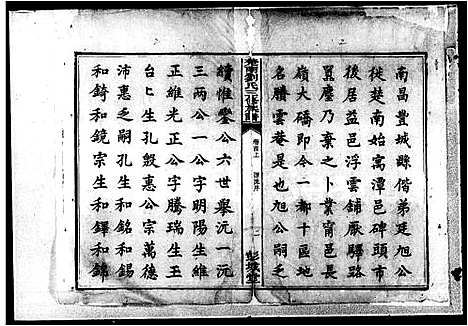 南昌豐城縣偕弟廷旭公
徙楚南始寓潭邑碑頭市
後居益邑浮雲鋪厭驛路
囂塵乃棄卜業甯邑長
嶺大礄即今一都十區地
名騰雲庵是也旭公嗣乏
劉氏三修族譜
卷首上
彭城堂
續惟鑾公六世舉沅一沅
三兩公一公字明陽生維
正維光正公字騰瑞生王
台上生孔毅惠公宗萬德
沛惠之嗣孔生和銘和錫
和錡和鏡宗生和鐸和錦